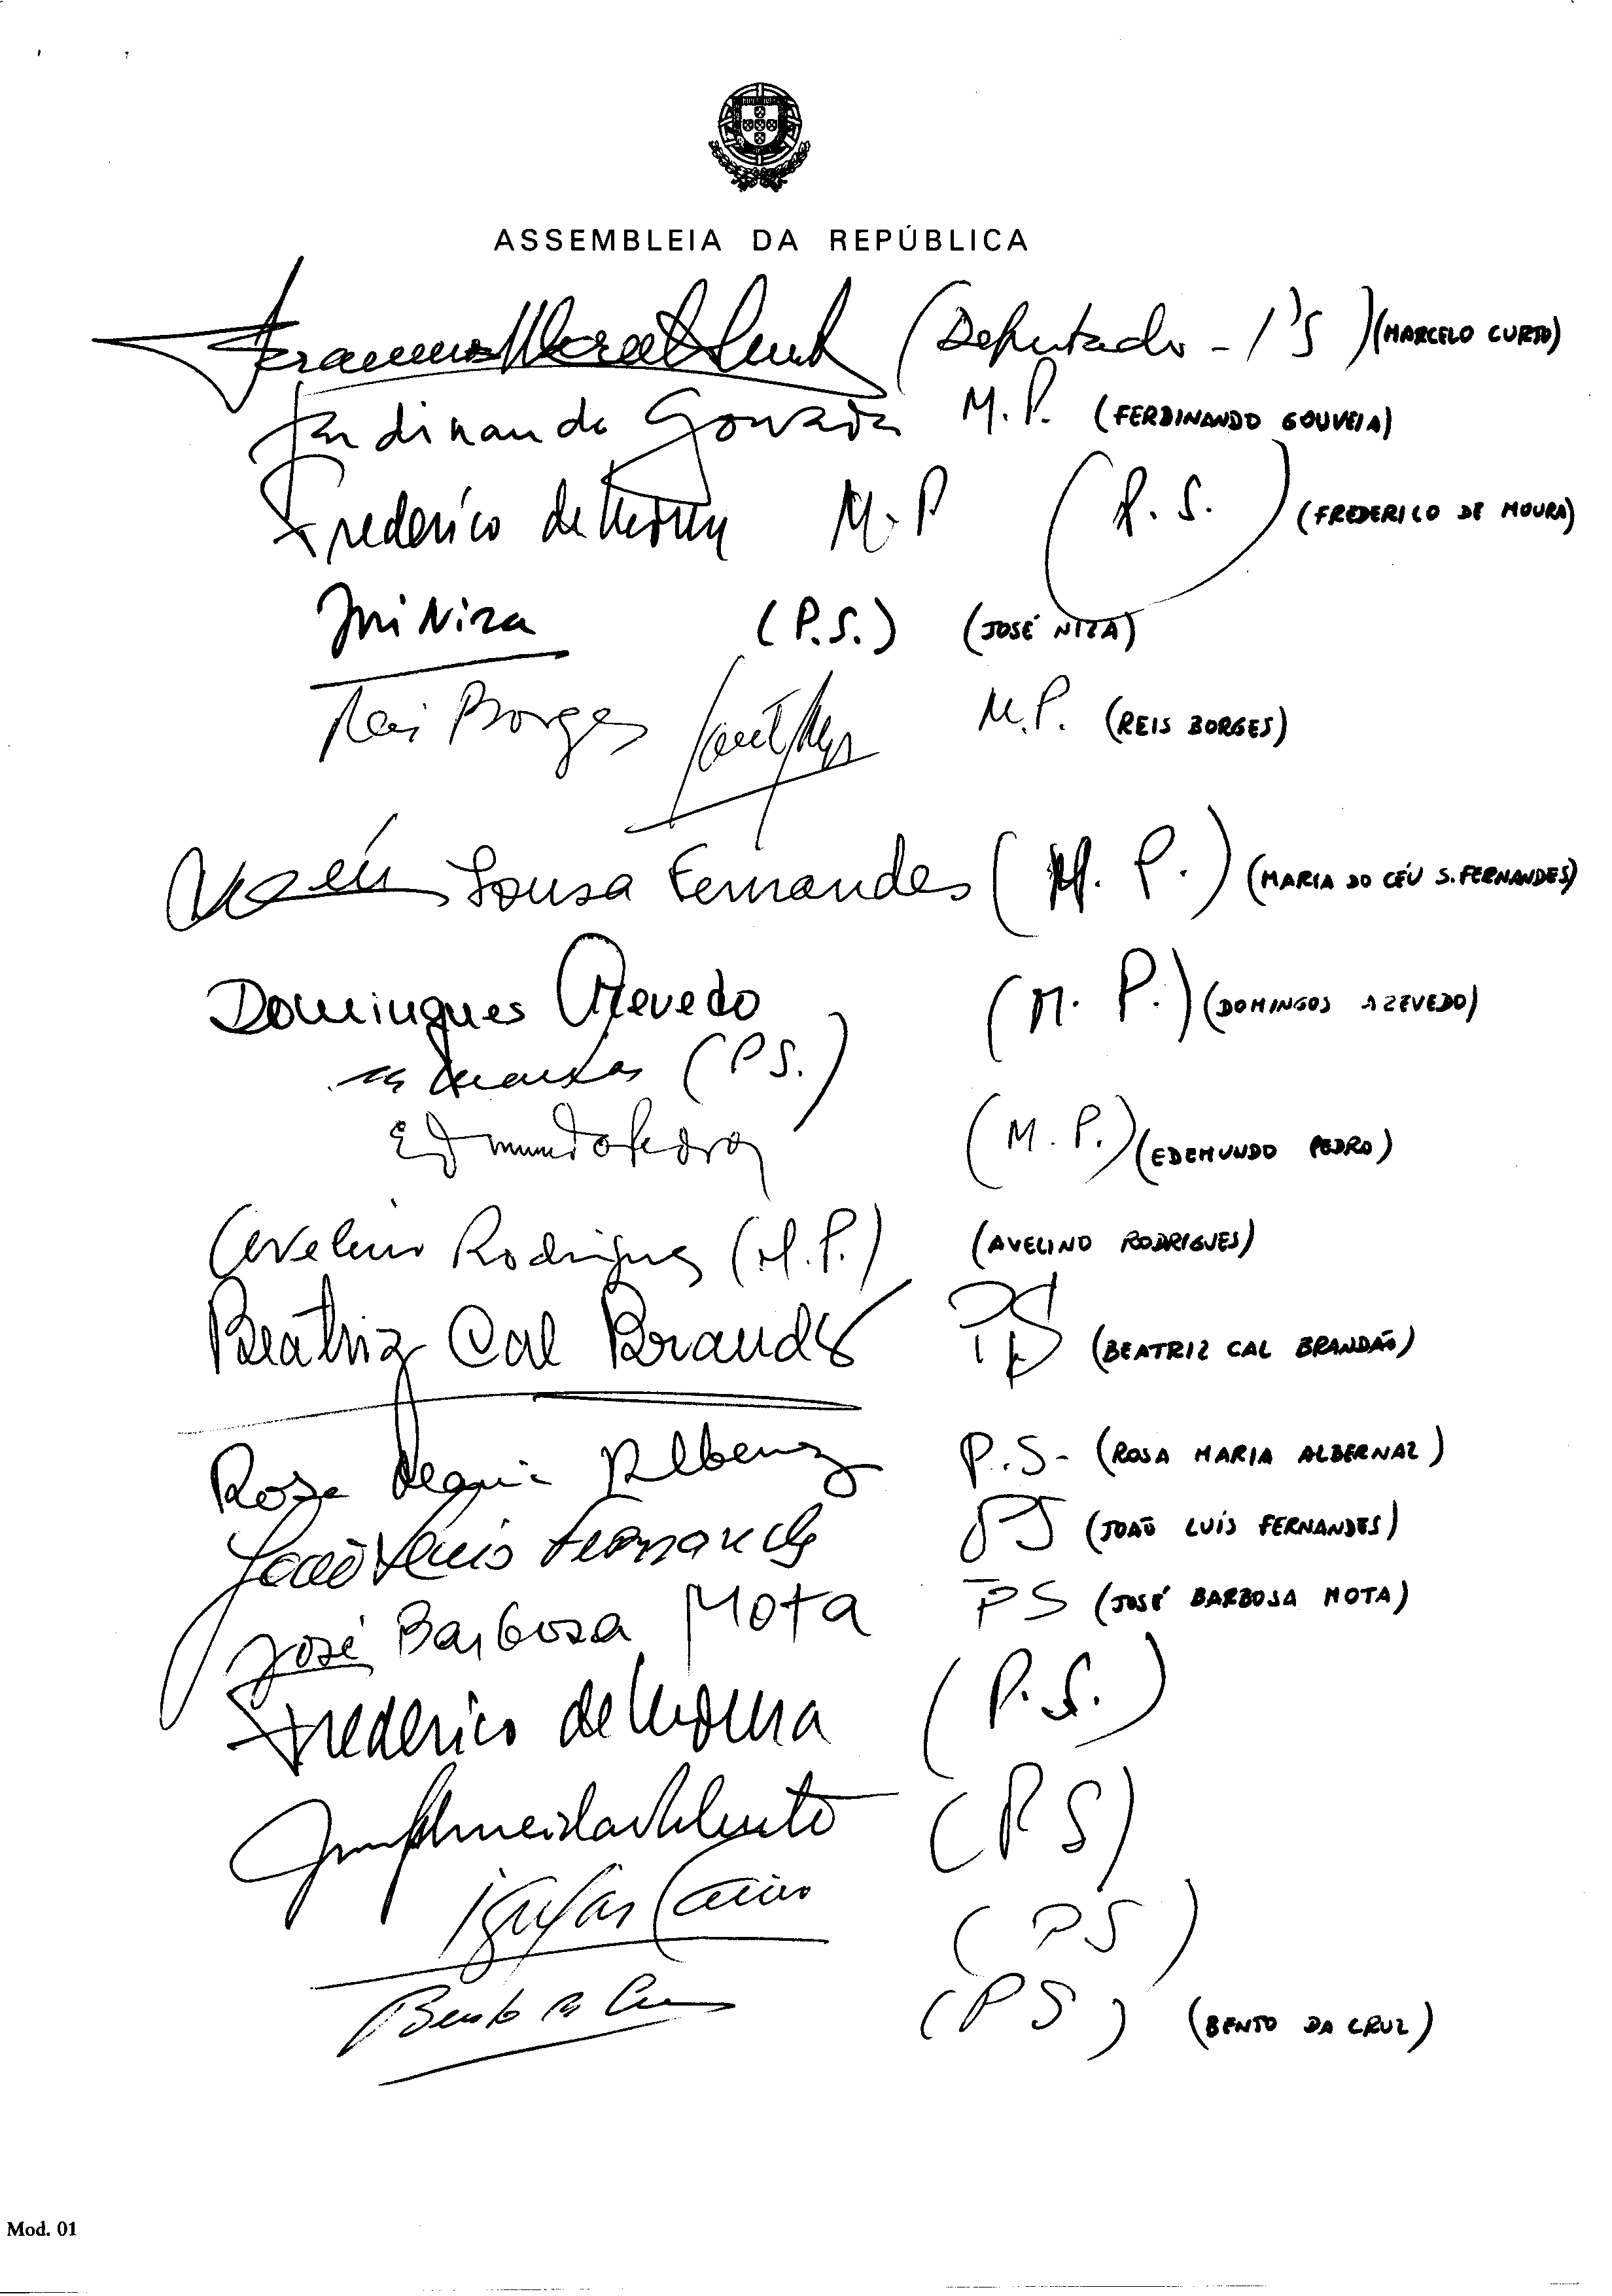 ASSEMBLEIA DA REPÚBLICA
(Deputado - PS) (MARCELO CURTO)
Ferdinando Gouveia M.P. (FERDINANDO GOUVEIA)
Frederico de Moura M.P (P.S.) (FREDERICO DE MOURA)
José Niza (P.S.) (JOSÉ NIZA)
Reis Borges M.P. (REIS BORGES)
Sousa Fernandes (M. P.) (MARIA DO CÉU S. FERNANDES)
Domingues Azevedo (M. P.) (DOMINGOS AZEVEDO)
(PS.)
Edmundo Pedro (M.P.) (EDEMUNDO PEDRO)
Avelino Rodrigues (M.P.) (AVELINO RODRIGUES)
Beatriz Cal Brandão PS (BEATRIZ CAL BRANDÃO)
Rosa Maria Albernaz P.S- (ROSA MARIA ALBERNAZ)
João Luis Fernandes PS (JOAÕ LUÍS FERNANDES)
José Barbosa Mota PS (JOSÉ BARBOSA MOTA)
Frederico de Moura (P.S.)
(PS)
(PS)
Bento da Cruz (PS) (BENTO DA CRUZ)
Mod. 01